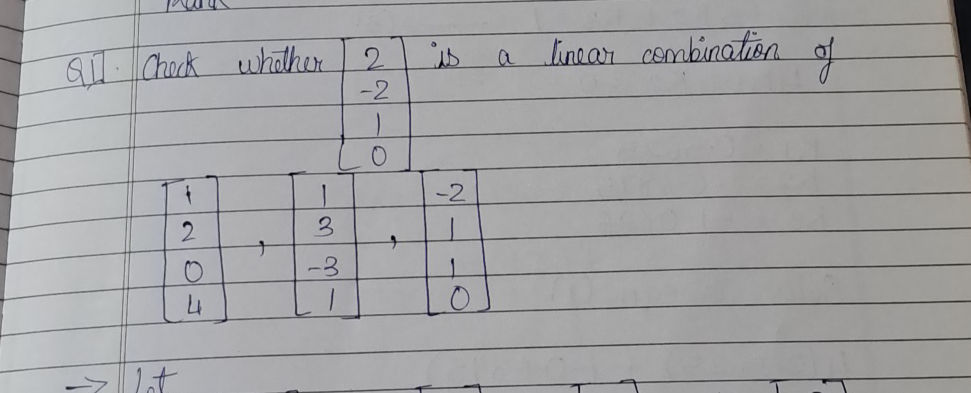 Q1]. Check whether [2 is a linear combination of
-2
1
0]
[1 [1 [-2
2 , 3 , 1
0 -3 1
4] 1] 0]
→ Let